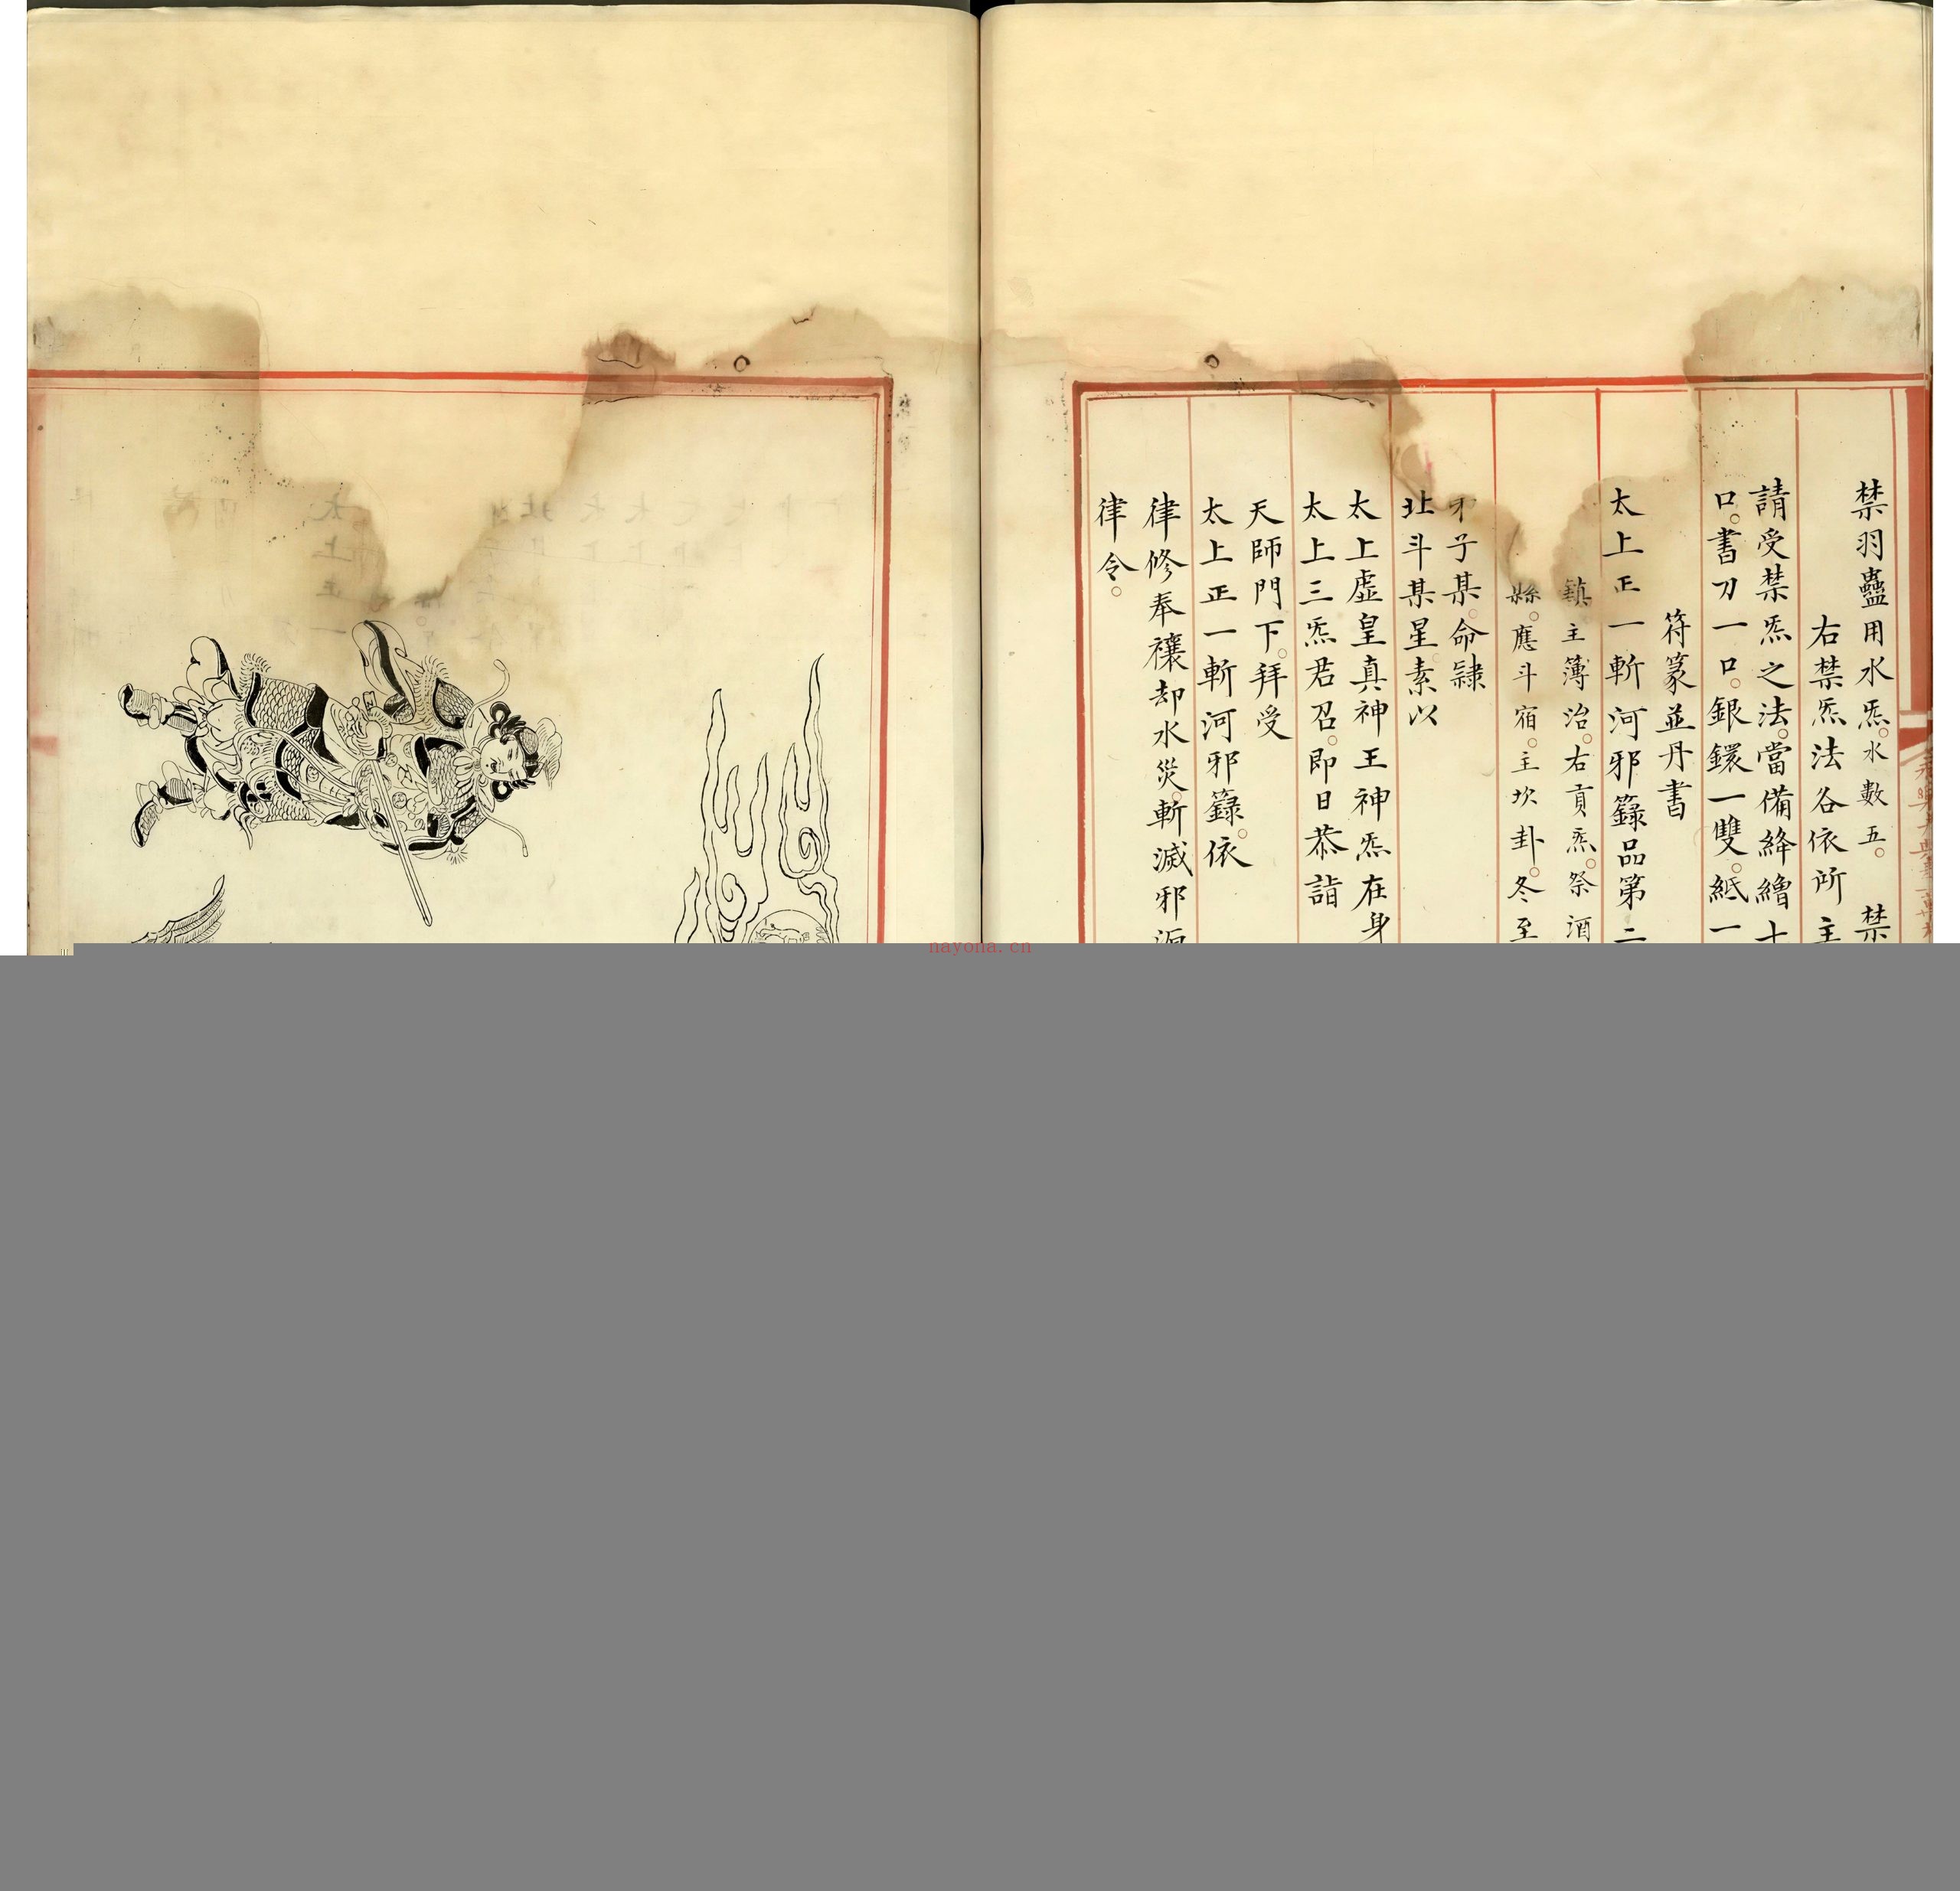 禁羽蠱用水炁。水數五。 禁
右禁炁法各依所主
請受禁炁之法。當備絳繒十
口。書刀一口。銀鐶一雙。紙一
符篆並丹書
太上正一斬河邪籙品第二
鎮主簿治。右貢炁。祭酒
縣。應斗宿。主坎卦。冬至
子某。命隸
北斗某星素以
太上虛皇真神王神炁在身
太上三炁君召。即日恭詣
天師門下。拜受
太上正一斬河邪籙。依
律修奉禳却水災。斬滅邪
律令。
nayona.cn